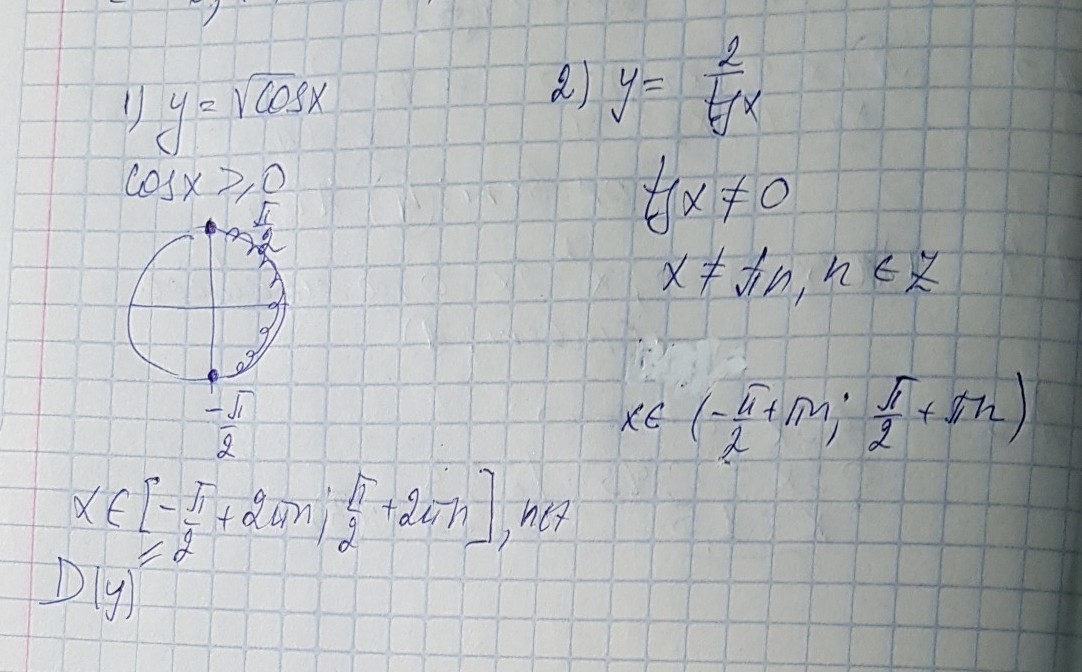 1) y = √cosx
cosx ⩾ 0
π/2
-π/2
x ∈ [-π/2 + 2πn; π/2 + 2πn], n∈Z
D(y)
2) y = 2/tgx
tgx ≠ 0
x ≠ πn, n ∈ Z
x ∈ (-π/2 + πn; π/2 + πn)